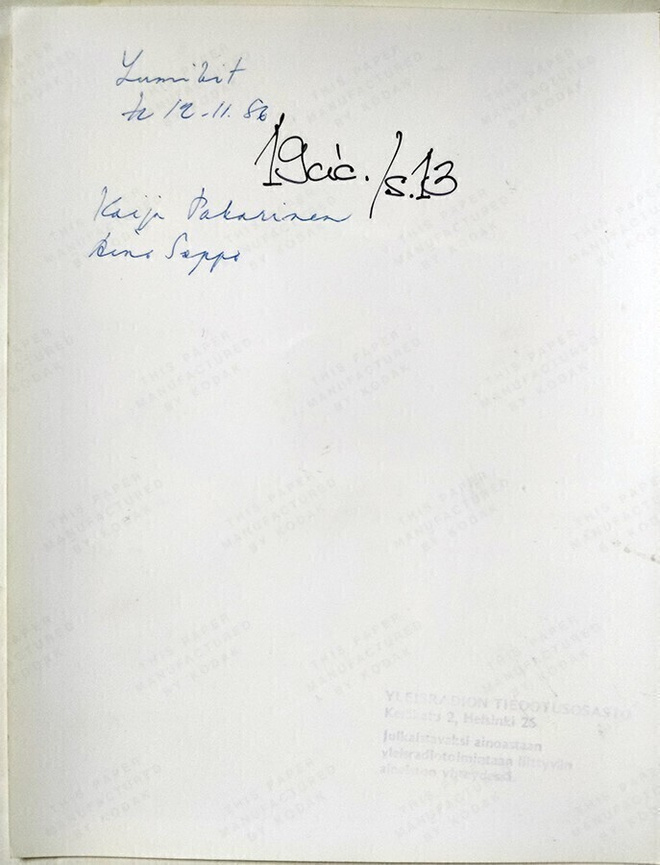 Lumikit
12-11. 86
19cic. / s.13
Kaija Pakarinen
Aino Seppo
YLEISRADION TIEDOTUSOSASTO
Kesäkatu 2, Helsinki 26
Julkaistavaksi ainoastaan
yleisradiotoimintaan liittyvän
aineiston yhteydessä.
THIS PAPER
MANUFACTURED
BY KODAK